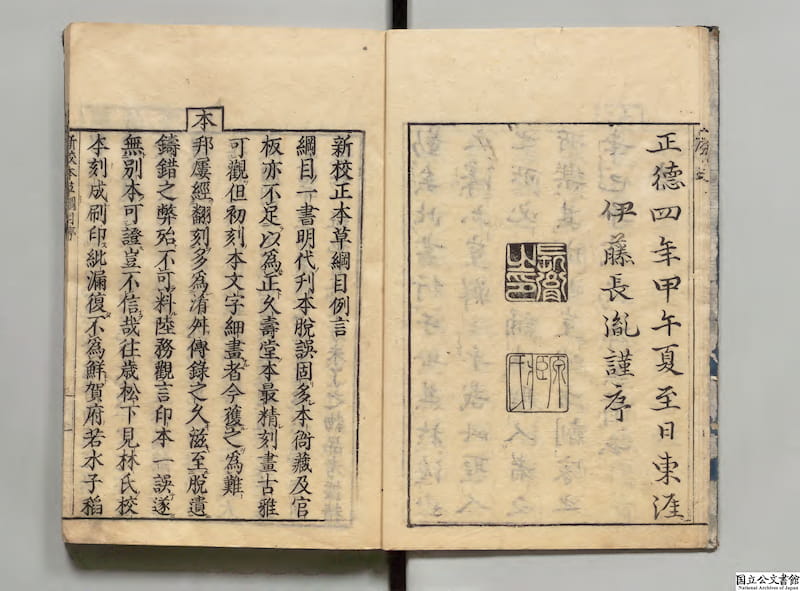 正德四年甲午夏至日東涯
伊藤長胤謹序
長胤之印
新校正本草綱目例言
綱目一書明代刋本脫誤固多本衙藏及官
板亦不足以為正久壽堂本最精刻畫古雅
可觀但初刻本文字細畫者今獲之為難
本
邦屢經翻刻多為淆舛傳錄之久滋至脫遺
鑄錯之弊殆不可料陸務觀言印本一誤遂
無別本可證豈不信哉往歳松下見林氏校
本刻成刷印紕漏復不為鮮賀府若水子稻
新校本草綱目序
国立公文書館
National Archives of Japan